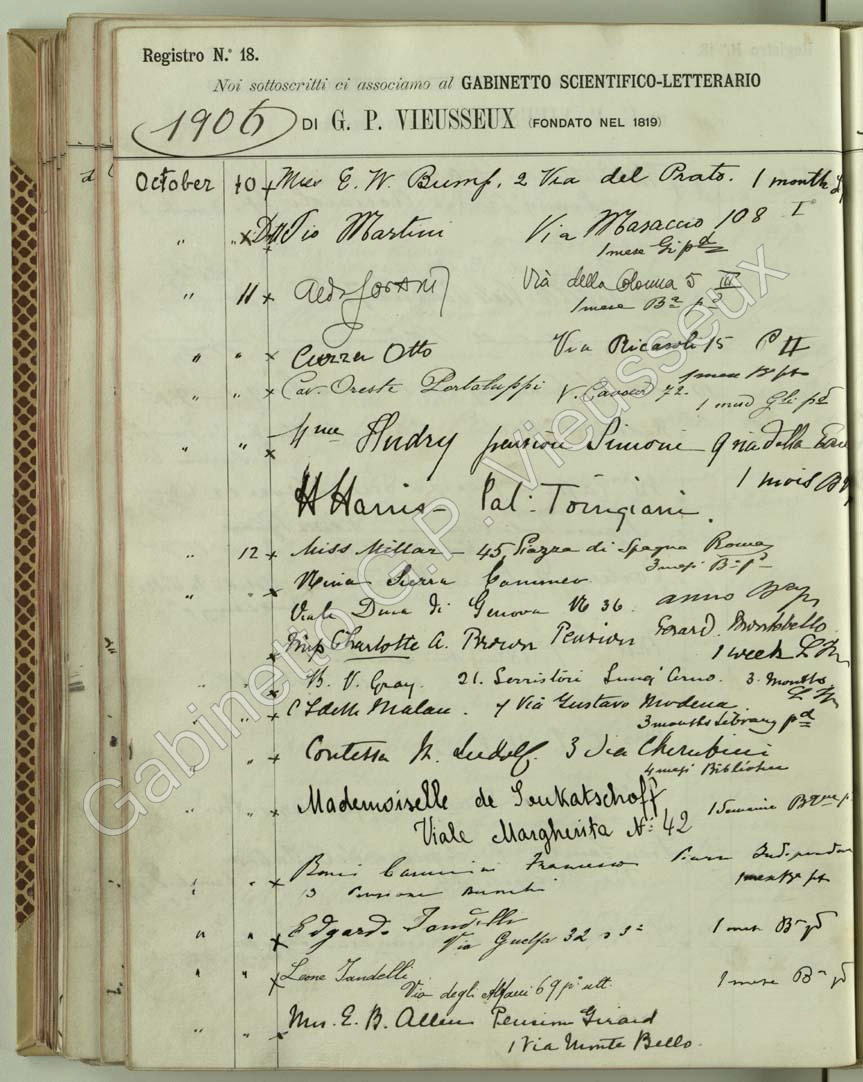 Registro N.° 18.
Noi sottoscritti ci associamo al GABINETTO SCIENTIFICO-LETTERARIO
1906 DI G. P. VIEUSSEUX (FONDATO NEL 1819)
October 10 x Miss E. W. Bump, 2 Via del Prato. 1 month
" " x Pio Martini Via Masaccio 108 I
1 mese
" 11 x Aldo Via della Colonna 5 III
1 mese Ba pd
" " x Otto Via Ricasoli 15 PII
1 mese
" " x Cav. Oreste Portaluppi V. Cavour 72.
1 mese Gli pd
" " x Mme Hudry pension Simoni 9 via della
1 mois
H Harris - Pal: Torrigiani.
" 12 x Miss Millar - 45 Piazza di Spagna Roma
3 mesi Ba pd
" x Nina Sierra
Viale Duca di Genova No 36. anno
x Miss Charlotte A. Brown Pension Montebello
1 week
" " x B. V. Gray. 21. Serristori Lung' Arno. 3. Months
" " x Malan. 7 Via Gustavo Modena.
3 months Library pd
" " x Contessa Ludolf. 3 Via Cherubini
4 mesi Biblioteca
" " x Mademoiselle de
Viale Margherita No: 42
" " x Francesco
Pensione
" " x Edgardo Jandelli
Via Guelfa 32 1 mese Ba pd
" " x Leone Jandelli
Via degli Alfani 69 po ult. 1 mese Ba pd
" " x Mrs. E. B. Allen Pension Girard
1 Via Monte Bello.
Gabinetto G.P. Vieusseux